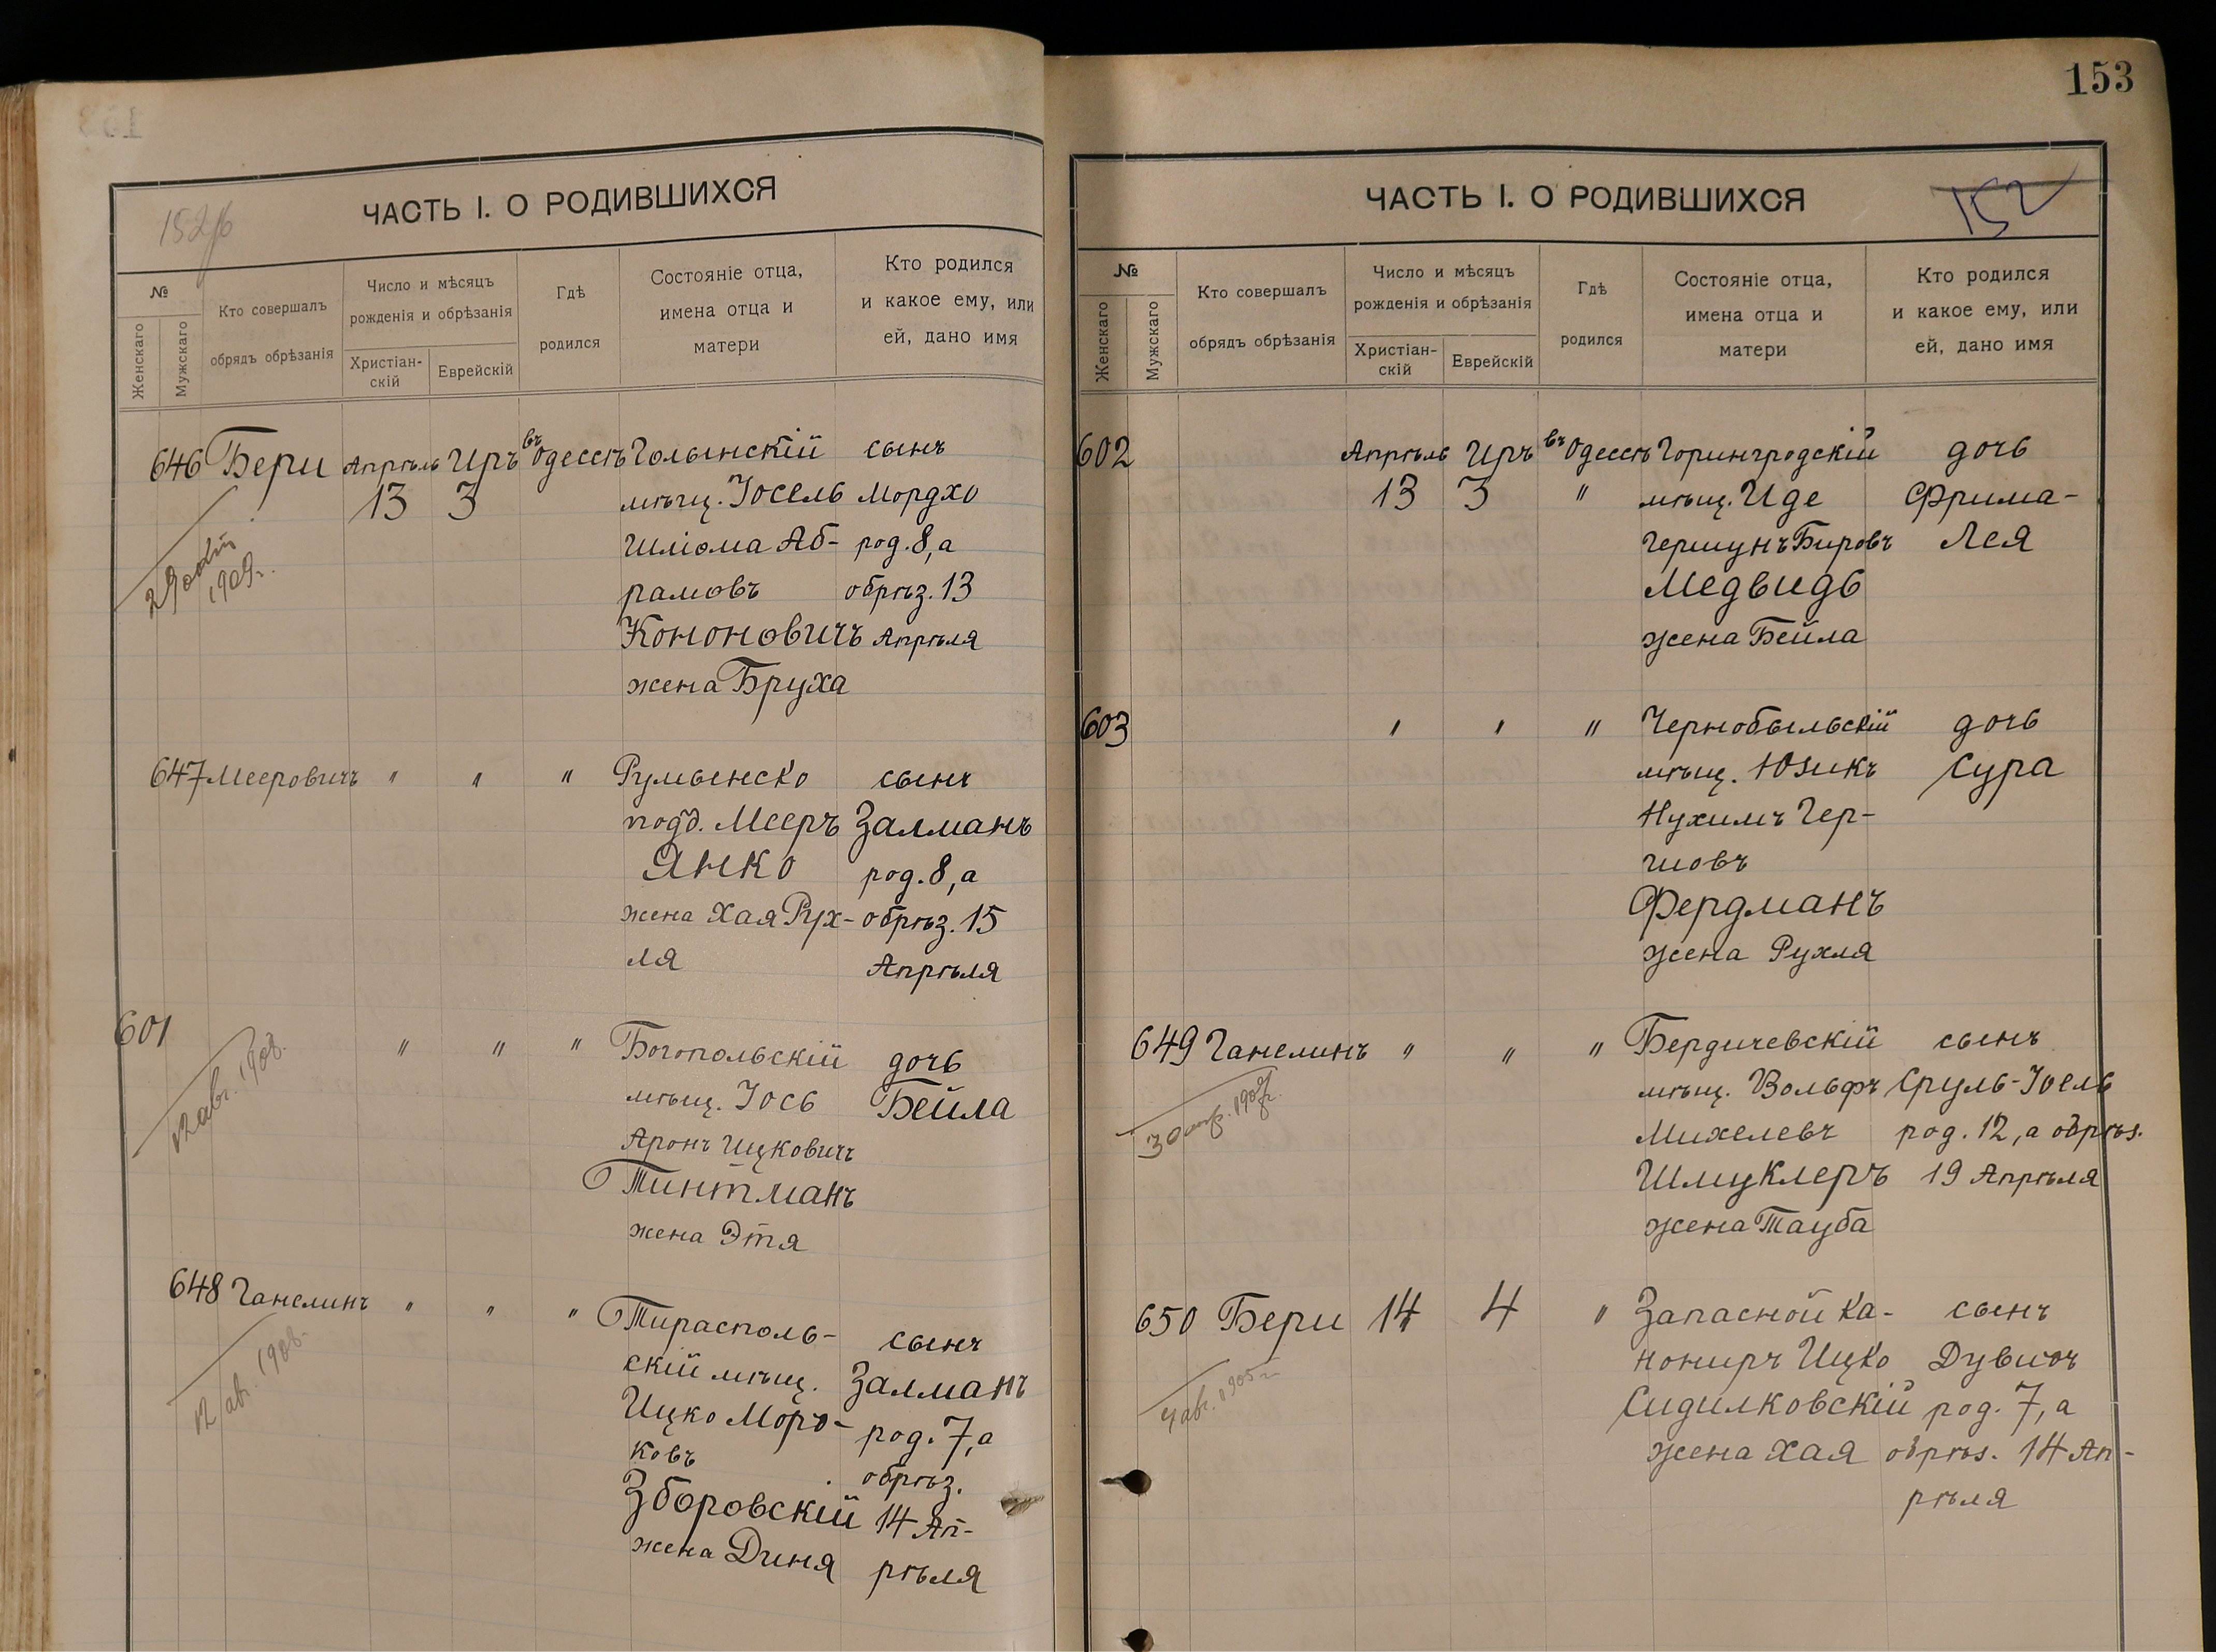 ЧАСТЬ I. О РОДИВШИХСЯ
№
Женскаго
Мужскаго
Кто совершалъ
обрядъ обрѣзанія
Число и мѣсяцъ
рожденія и обрѣзанія
Христіан-
скій
Еврейскій
Гдѣ
родился
Состояніе отца,
имена отца и
матери
Кто родился
и какое ему, или
ей, дано имя
646 Бери Апрѣль Иръ въ Одессѣ Голынскій сынъ
13 3 мѣщ. Іосель Мордхо
Шліома Аб- род. 8, а
рамовъ обрѣз. 13
Кононовичъ Апрѣля
жена Бруха
1909г.
647 Мееровичъ " " " Румынско сынъ
подд. Мееръ Залманъ
Янко род. 8, а
жена Хая Рух- обрѣз. 15
ля Апрѣля
601 " " " Богопольскій дочь
мѣщ. Іось Бейла
Аронъ Ицковичъ
Тинтманъ
жена Этя
12 авг. 1908.
648 Ганелинъ " " " Тирасполь- сынъ
скій мѣщ. Залманъ
Ицко Морд- род. 7, а
ковъ обрѣз.
Зборовскій 14 Ап-
жена Диня рѣля
12 авг. 1908.
153
ЧАСТЬ I. О РОДИВШИХСЯ
152
№
Женскаго
Мужскаго
Кто совершалъ
обрядъ обрѣзанія
Число и мѣсяцъ
рожденія и обрѣзанія
Христіан-
скій
Еврейскій
Гдѣ
родился
Состояніе отца,
имена отца и
матери
Кто родился
и какое ему, или
ей, дано имя
602 Апрѣль Иръ въ Одессѣ Горингродскій дочь
13 3 " мѣщ. Иде Фрима-
Гершунъ Бировъ Лея
Медвидь
жена Бейла
603 " " " Чернобыльскій дочь
мѣщ. Юзикъ Сура
Нухимъ Гер-
шовъ
Фердманъ
жена Рухля
649 Ганелинъ " " " Бердичевскій сынъ
мѣщ. Вольфъ Сруль-Іосель
Михелевъ род. 12, а обрѣз.
Шмуклеръ 19 Апрѣля
жена Тауба
650 Бери 14 4 " Запасной ка- сынъ
нониръ Ицко Дувидъ
Сидилковскій род. 7, а
жена Хая обрѣз. 14 Ап-
рѣля